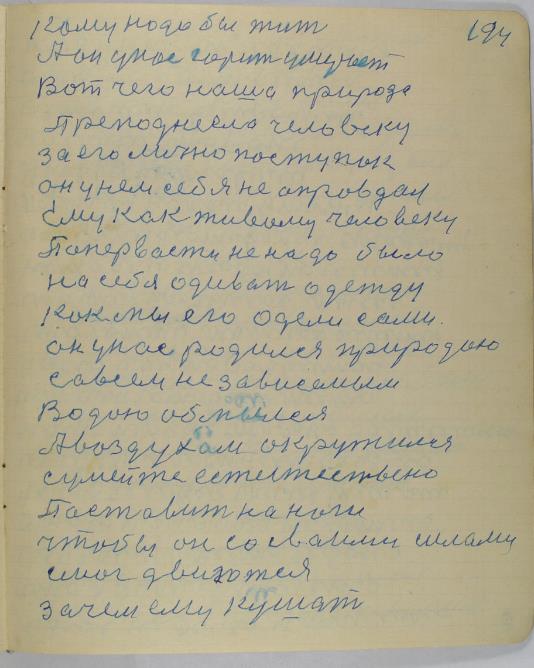 Кому надо был жит 194
А он у нас горит умирает
Вот чего наша природа
Преподнесла человеку
за его лично поступок
он у нем себя не оправдал
Ему как живому человеку
Попервасти не надо было
на себя одиват одежду
как мы его одели сами.
он у нас родился природою
савсем не зависемым
Водою обмылся
А воздухам окружился
сумейте естественно
Поставит на ноги
чтобы он со сваими силами
смог двигатся
зачем ему кушат